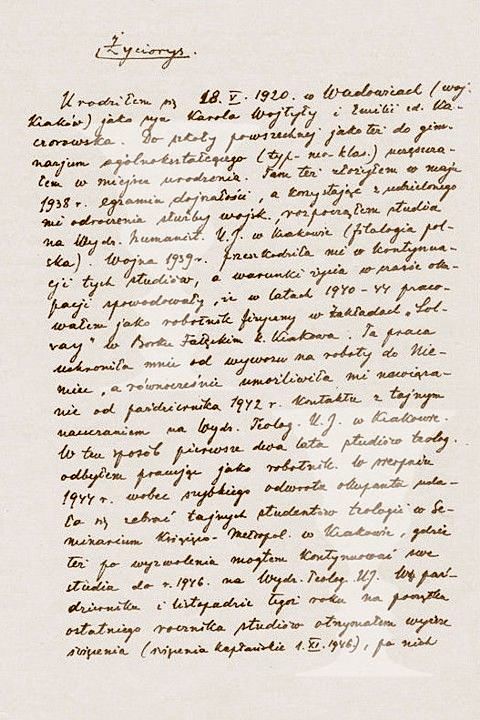 Życiorys.
Urodziłem się 18. V. 1920. w Wadowicach (woj.
Kraków) jako syn Karola Wojtyły i Emilii zd. Ka-
czorowska. Do szkoły powszechnej jako też do gim-
nazjum ogólnokształcącego (typ-neo-klas.) uczęszcza-
łem w miejscu urodzenia. Tam też złożyłem w maju
1938 r. egzamin dojrzałości, a korzystając z udzielonego
mi odroczenia służby wojsk., rozpocząłem studia
na Wydz. humanist. U. J. w Krakowie (filologia pol-
ska). Wojna 1939 r. przeszkodziła mi w kontynua-
cji tych studiów, a warunki życia w czasie oku-
pacji spowodowały, iż w latach 1940-44 praco-
wałem jako robotnik fizyczny w Zakładach „Sol-
vay" w Borku Fałęckim k. Krakowa. Ta praca
uchroniła mnie od wywozu na roboty do Nie-
miec, a równocześnie umożliwiła mi nawiąza-
nie od października 1942 r. kontaktu z tajnym
nauczaniem na Wydz. Teolog. U. J. w Krakowie.
W ten sposób pierwsze dwa lata studiów teolog.
odbyłem pracując jako robotnik. W sierpniu
1944 r. wobec szybkiego odwrotu okupanta uda-
ło się zebrać tajnych studentów teologii w Se-
minarium Książęco-Metropol. w Krakowie, gdzie
też po wyzwoleniu mogłem kontynuować swe
studia do r. 1946. na Wydz. Teolog. UJ. W paź-
dzierniku i listopadzie tegoż roku na początku
ostatniego rocznika studiów otrzymałem wyższe
święcenia (święcenia kapłańskie 1. XI. 1946), po nich